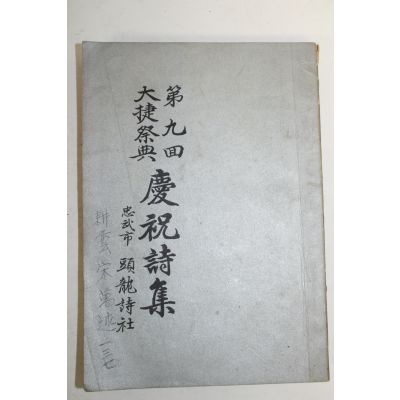 第九回
大捷祭典
慶祝詩集
忠武市
頭龍詩社
耕雲 宋
一三七